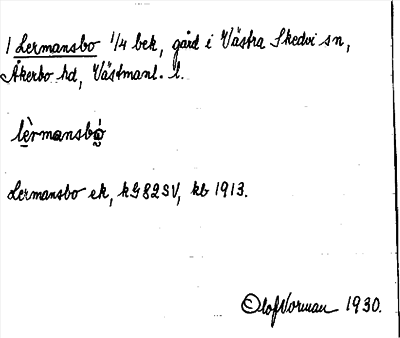 1 Lermansbo 1/4 bek, gård i Västra Skedvi sn,
Åkerbo hd, Västmanl. l.
lè̱rmansbó̰
Lermansbo ek, kG 82 SV, kb 1913.
Olof Norman 1930.